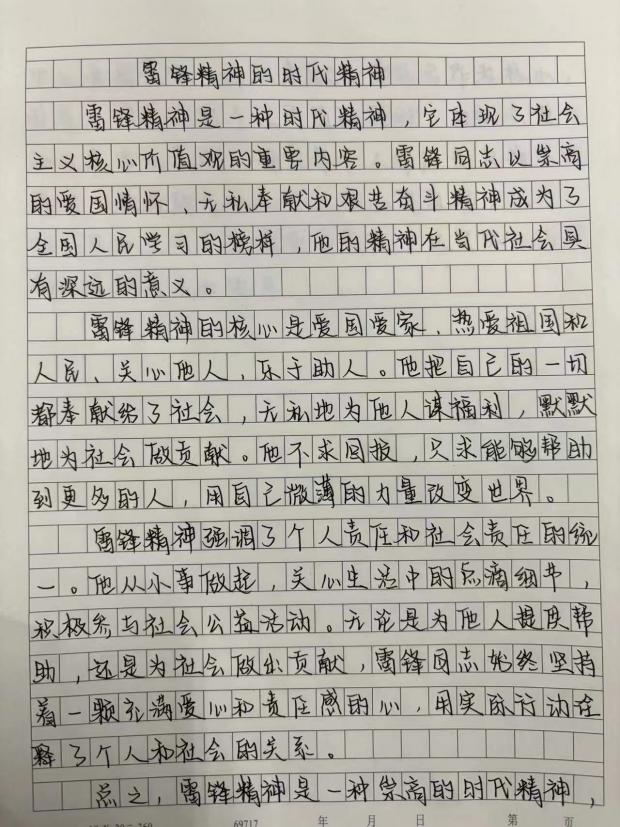 雷锋精神的时代精神
雷锋精神是一种时代精神，它体现了社会
主义核心价值观的重要内容。雷锋同志以崇高
的爱国情怀、无私奉献和艰苦奋斗精神成为了
全国人民学习的榜样，他的精神在当代社会具
有深远的意义。
雷锋精神的核心是爱国爱家、热爱祖国和
人民、关心他人，乐于助人。他把自己的一切
都奉献给了社会，无私地为他人谋福利，默默
地为社会做贡献。他不求回报，只求能够帮助
到更多的人，用自己微薄的力量改变世界。
雷锋精神强调了个人责任和社会责任的统
一。他从小事做起，关心生活中的点滴细节，
积极参与社会公益活动。无论是为他人提供帮
助，还是为社会做出贡献，雷锋同志始终坚持
着一颗充满爱心和责任感的心，用实际行动诠
释了个人和社会的关系。
总之，雷锋精神是一种崇高的时代精神，
69717 年 月 日 第 页